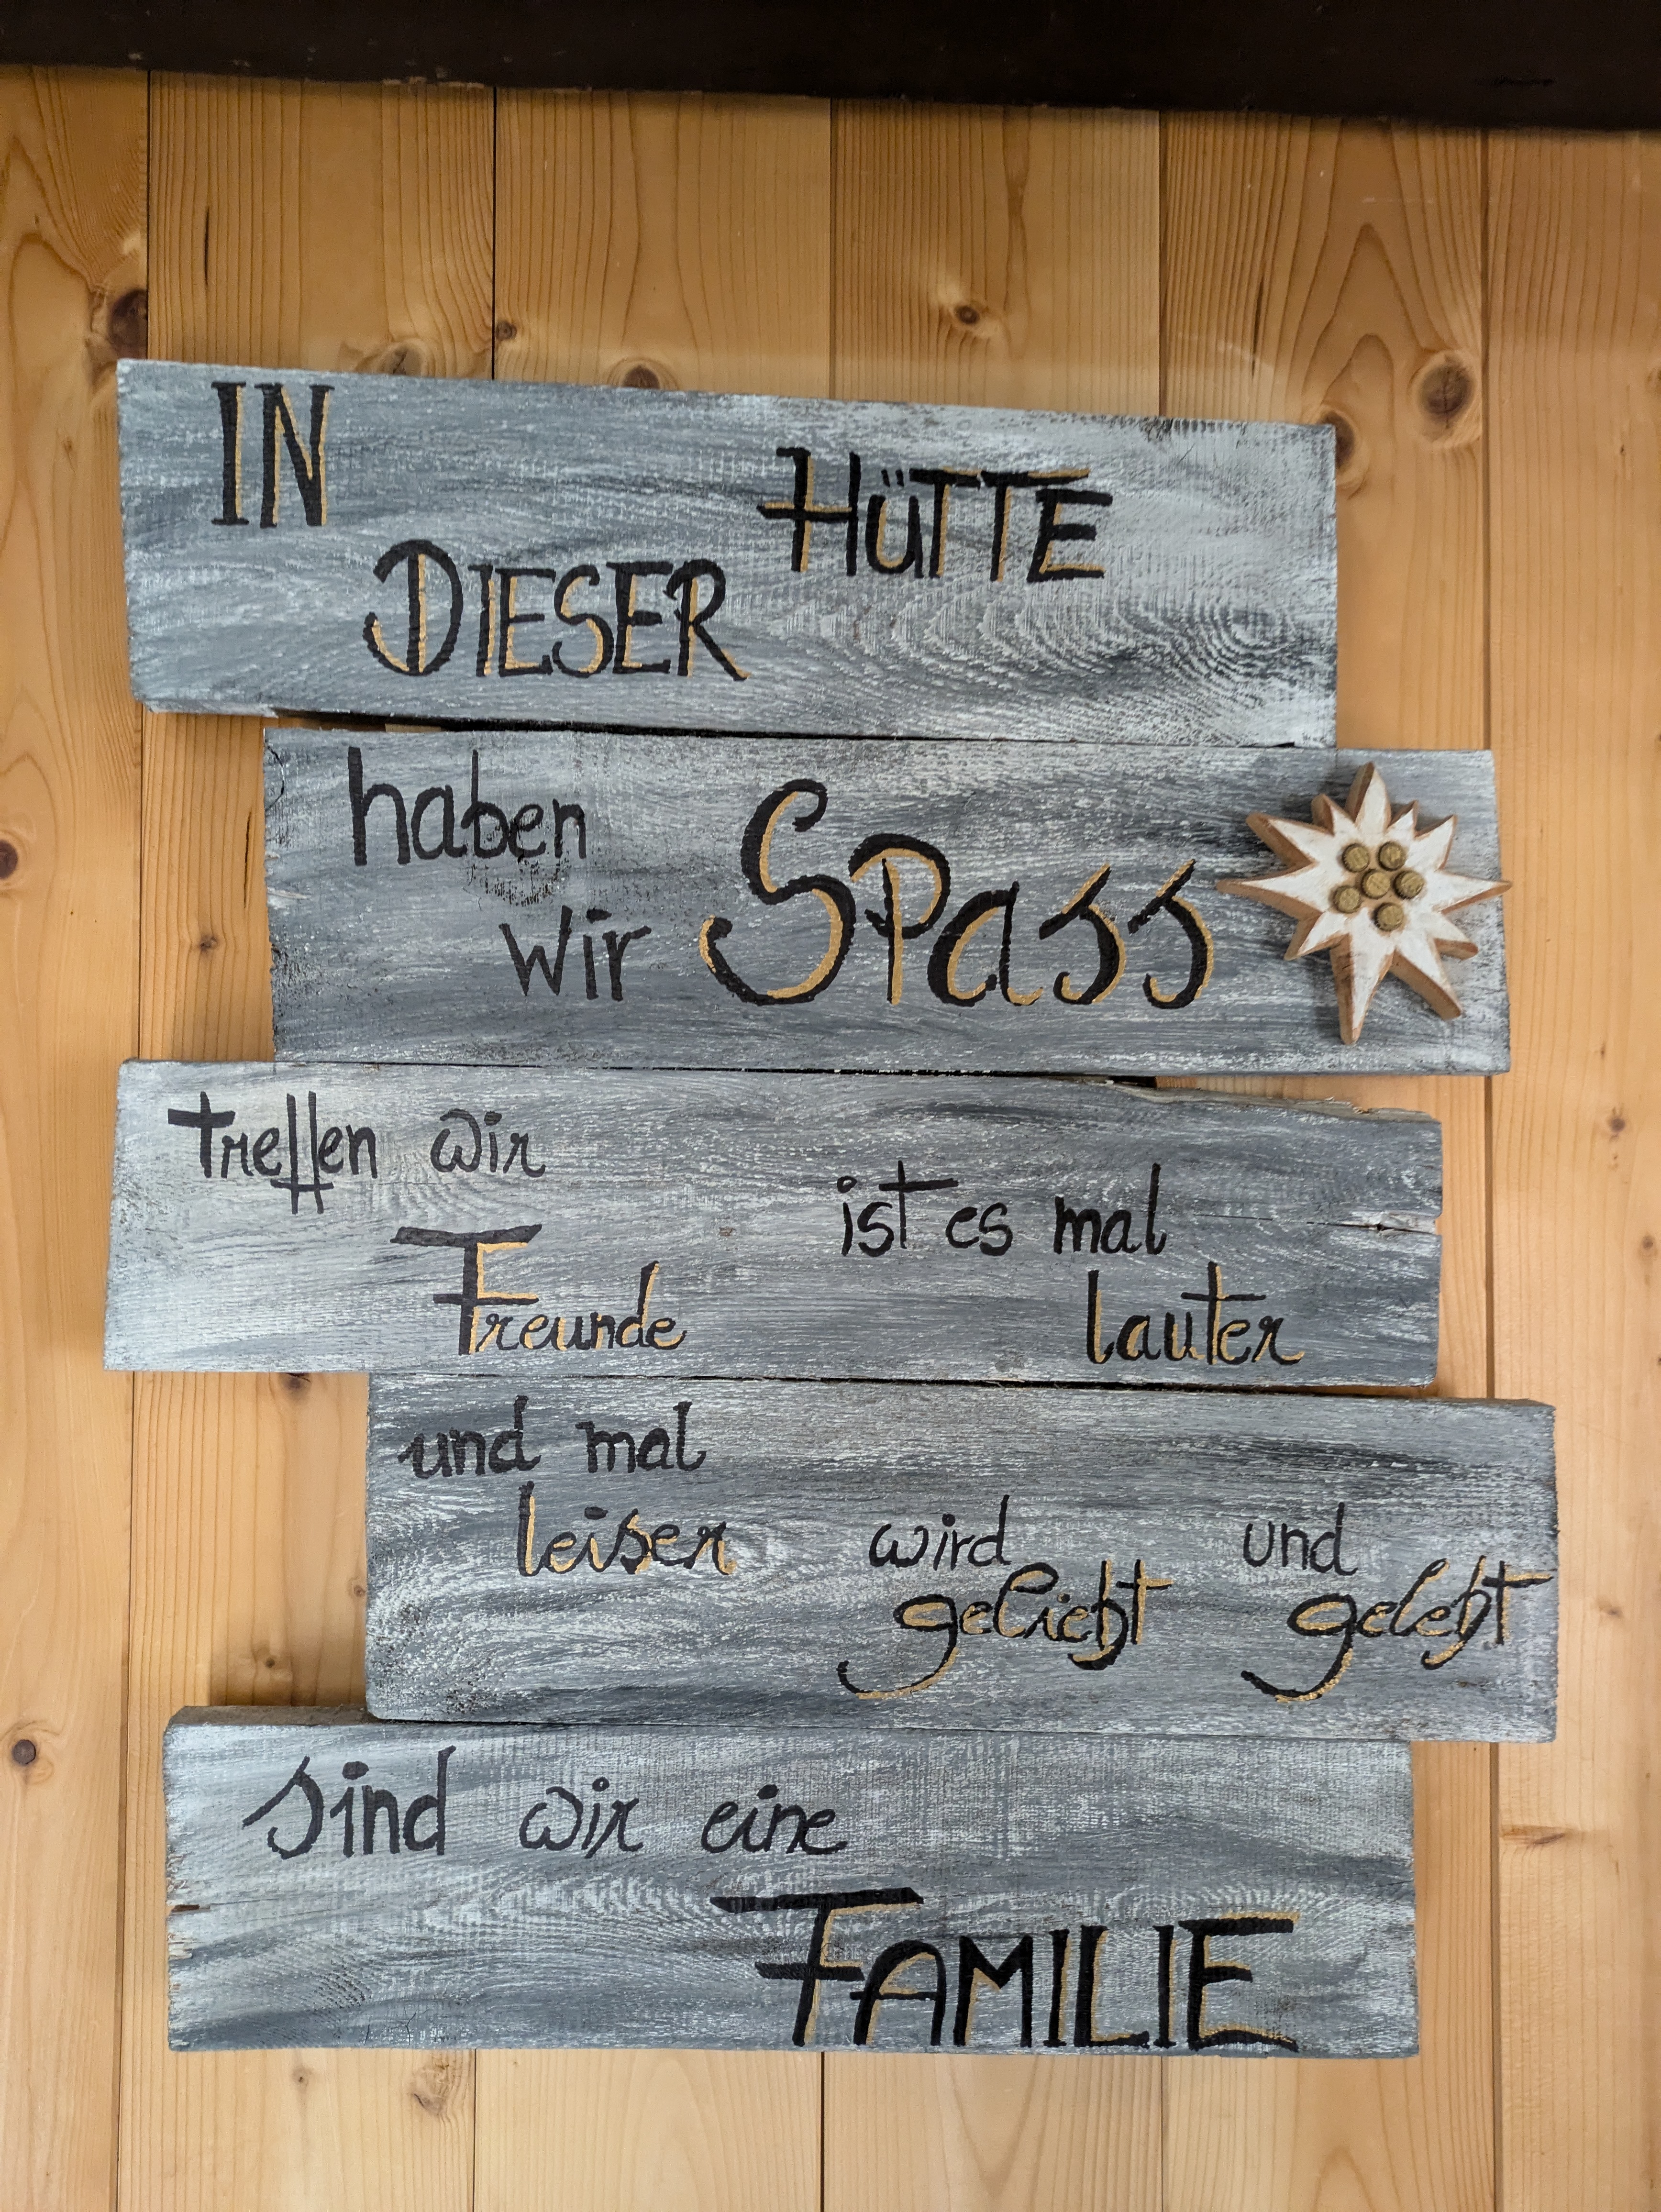 IN DIESER HÜTTE
haben
wir Spass
treffen wir
Freunde
ist es mal
lauter
und mal
leiser
wird
geliebt
und
gelebt
sind wir eine
FAMILIE